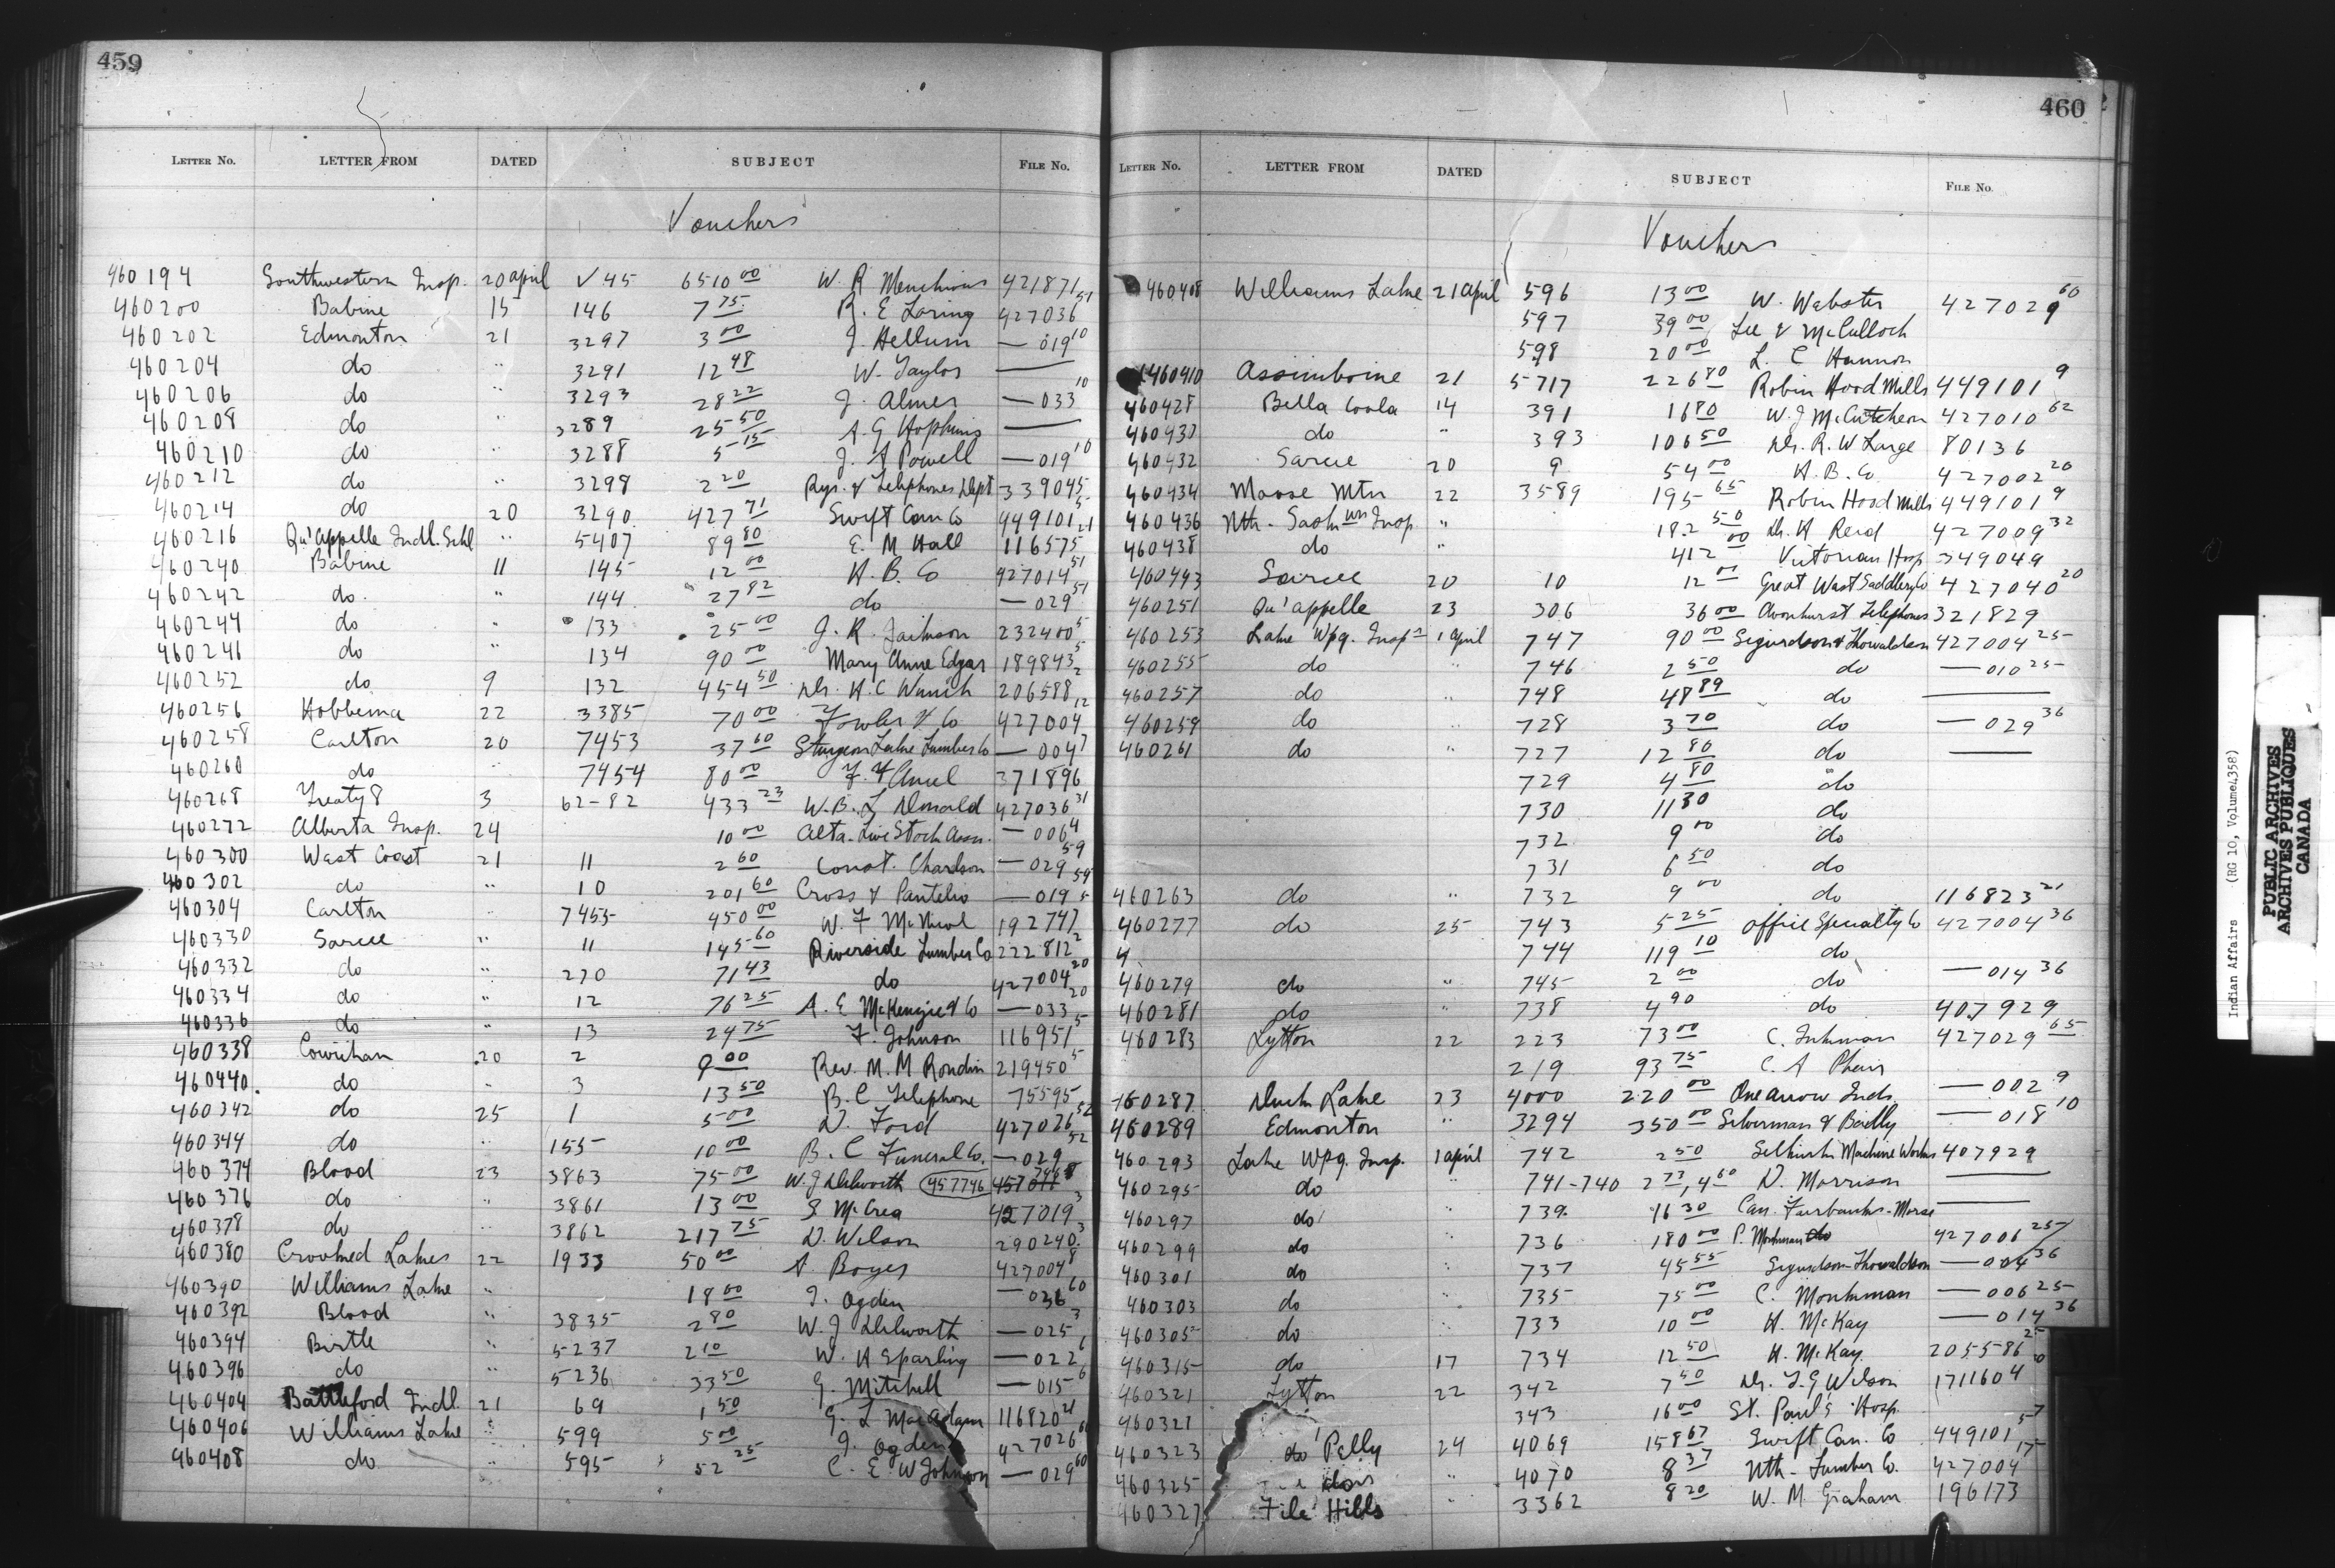 459
LETTER No. LETTER FROM DATED SUBJECT FILE No.
Vouchers
460194 Southwestern Insp. 20 april √45 6510 00 W. R 421871
460200 Babine 15 146 7 75 R. E Loring 427036 51
460202 Edmonton 21 3297 3 00 J. Hellum — 019 10
460204 do " 3291 12 48 W. Taylor —
460206 do " 3293 28 22 J. Almer — 033 10
460208 do " 3289 25 50 A. G Hopkins —
460210 do " 3288 5 15 J. A Powell — 019 10
460212 do " 3298 2 20 Rys. & Telephones Dept 339045
460214 do 20 3290 427 71 Swift Can Co 449101 5
460216 Qu'appelle Indl. Schl " 5407 89 80 E. M Hall 116575 21
460240 Babine 11 145 12 00 H. B. Co 427014 51
460242 do. " 144 27 82 do — 029 51
460244 do " 133 25 00 J. R. 232400 5
460246 do " 134 90 00 Mary Anne Edgar 189843 5
460252 do 9 132 454 50 Dr. H. C Wrinch 206588 2
460256 Hobbema 22 3385 70 00 Fowler & Co 427004 12
460258 Carlton 20 7453 37 60 Sturgeon Lake Lumber Co — 004 7
460260 do " 7454 80 00 371896
460268 Treaty 8 3 62-82 433 23 W. B. L Donald 427036 31
460272 Alberta Insp. 24 10 00 Alta. Live Stock Assn. — 006 4
460300 West Coast 21 11 2 60 Const. Charlson — 029 59
460302 do " 10 201 60 Cross & — 019 59
460304 Carlton " 7455 450 00 W. F McNicol 192747 5
460330 Sarcee " 11 145 60 Riverside Lumber Co 222812 2
460332 do " 270 71 43 do 427004 20
460334 do " 12 76 25 A. E McKenzie & Co — 033 20
460336 do " 13 24 75 F. Johnson 116951 5
460338 Cowichan 20 2 9 00 Rev. M. M Rondin 219450 5
460440 do " 3 13 50 B. C Telephone 75595
460342 do 25 1 5 00 D. Ford 427026 52
460344 do " 155 10 00 B. C Funeral Co. — 029 52
460374 Blood 23 3863 75 00 W. J Dilworth (457746)
460376 do " 3861 13 00 S McCrea 427019 3
460378 do " 3862 217 75 D. Wilson 290240 3
460380 Crooked Lakes 22 1933 50 00 A Boyer 427004 8
460390 Williams Lake " 18 00 J. Ogden — 036 60
460392 Blood " 3835 2 80 W. J Dilworth — 025 3
460394 Birtle " 5237 2 10 W. H Sparling — 022 6
460396 do " 5236 33 50 G. Mitchell — 015 6
460404 Battleford Indl. 21 69 1 50 G. L MacAdam 116820 21
460406 Williams Lake " 599 5 00 J. Ogden 427026 60
460408 do " 595 52 25 C. E. W Johnson — 029 60
460
LETTER No. LETTER FROM DATED SUBJECT FILE No.
Vouchers
460408 Williams Lake 21 april 596 13 00 W. Webster 427029 60
597 39 00 Lee & McCulloch
598 20 00 L. C Hannon
460410 Assiniboine 21 5717 226 80 Robin Hood Mills 449101 9
460428 Bella Coola 14 391 16 80 W. J McCutcheon 427010 62
460430 do " 393 106 50 Dr. R. W Large 80136
460432 Sarcee 20 9 54 00 H. B. Co 427002 20
460434 Moose Mtn 22 3589 195 65 Robin Hood Mills 449101 9
460436 Nth-Sask wn Insp. " 182 50 Dr. H Reid 427009 32
460438 do " 412 00 Victorian Hosp 349049
460443 Sarcee 20 10 12 00 Great West Saddlery Co 427040 20
460251 Qu'appelle 23 306 36 00 Avonhurst Telephones 321829
460253 Lake Wpg. Insp 1 april 747 90 00 Sigurdson & Thorvaldson 427004 25
460255 do " 746 2 50 do — 010 25
460257 do " 748 48 89 do —
460259 do " 728 3 70 do — 029 36
460261 do " 727 12 80 do —
729 4 80 do
730 11 30 do
732 9 00 do
731 6 50 do
460263 do " 732 9 00 do 116823 21
460277 do 25 743 5 25 Office Specialty Co 427004 36
4 744 119 10 do
460279 do " 745 2 00 do — 014 36
460281 do " 738 4 90 do 407929
460283 Lytton 22 223 73 00 C. Inkman 427029 65
219 93 75 C. A Phair
460287 Duck Lake 23 4000 220 00 One Arrow Inds. — 002 9
460289 Edmonton " 3294 350 00 Silverman & Bailly — 018 10
460293 Lake Wpg. Insp. 1 april 742 2 50 Selkirk Machine Works 407929
460295 do 741-740 2 73, 4 60 D. Morrison —
460297 do 739 16 30 Can. Fairbanks-Morse —
460299 do " 736 180 00 P. Monkman 427006 25
460301 do 737 45 55 Sigurdson-Thorvaldson — 004 36
460303 do " 735 75 00 C. Monkman — 006 25
460305 do " 733 10 00 H. McKay — 014 36
460315 do 17 734 12 50 H. McKay 205586 25
460321 Lytton 22 342 7 50 Dr. J. G Wilson 171160 4
460321 343 16 00 St. Paul's Hosp.
460323 Pelly 24 4069 158 67 Swift Can. Co 449101 57
460325 do " 4070 8 37 Nth-Lumber Co. 427004 15
460327 File Hills " 3362 8 20 W. M. Graham 196173
Indian Affairs (RG 10, Volume 4358)
PUBLIC ARCHIVES
ARCHIVES PUBLIQUES
CANADA